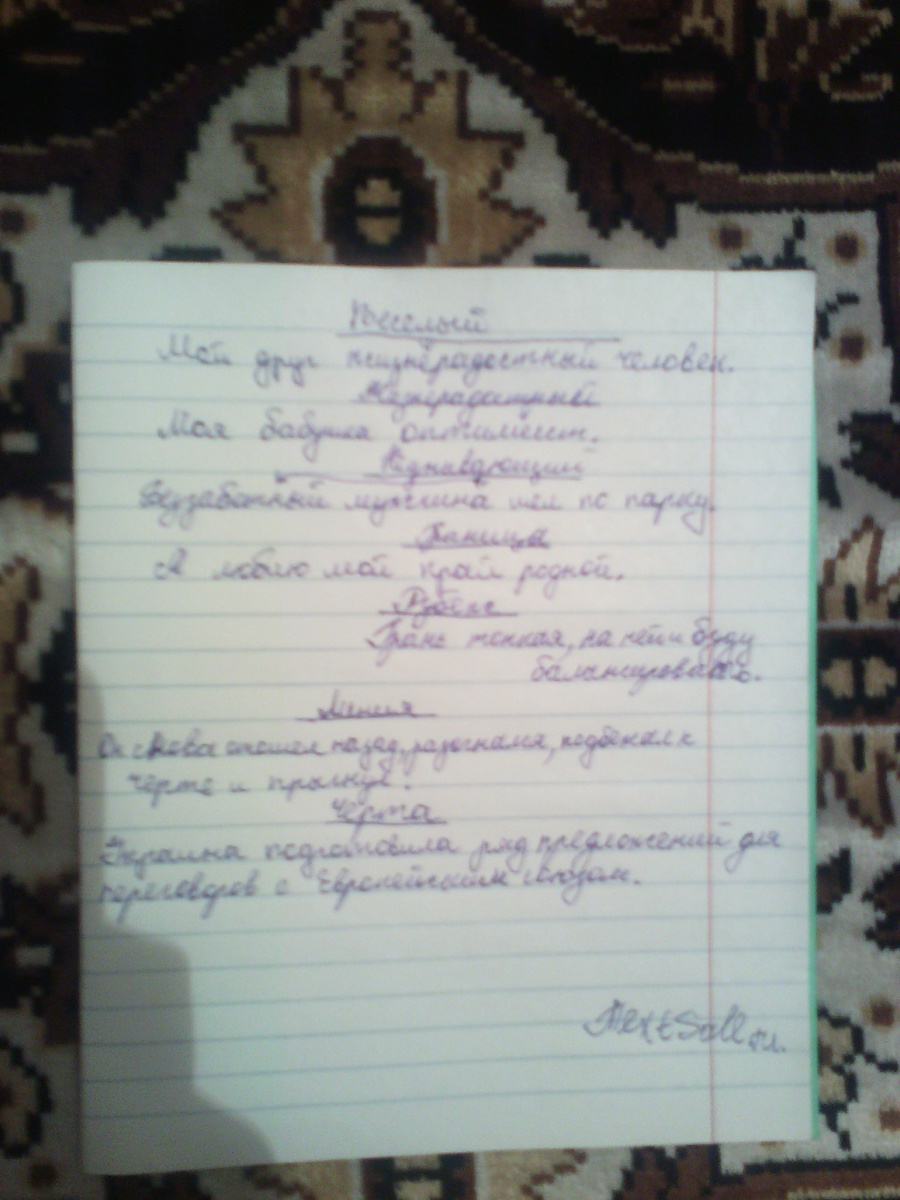 Веселый
Мой друг жизнерадостный человек.
Жизнерадостный
Моя бабушка оптимист.
Беззаботный мужчина шел по парку.
Граница
Я люблю мой край родной.
Рубеж
Грань тонкая, на ней и буду
балансировать.
Линия
Он снова отошел назад, разогнался, подбежал к
черте и прыгнул.
Черта
Украина подготовила ряд предложений для
переговоров с Европейским союзом.